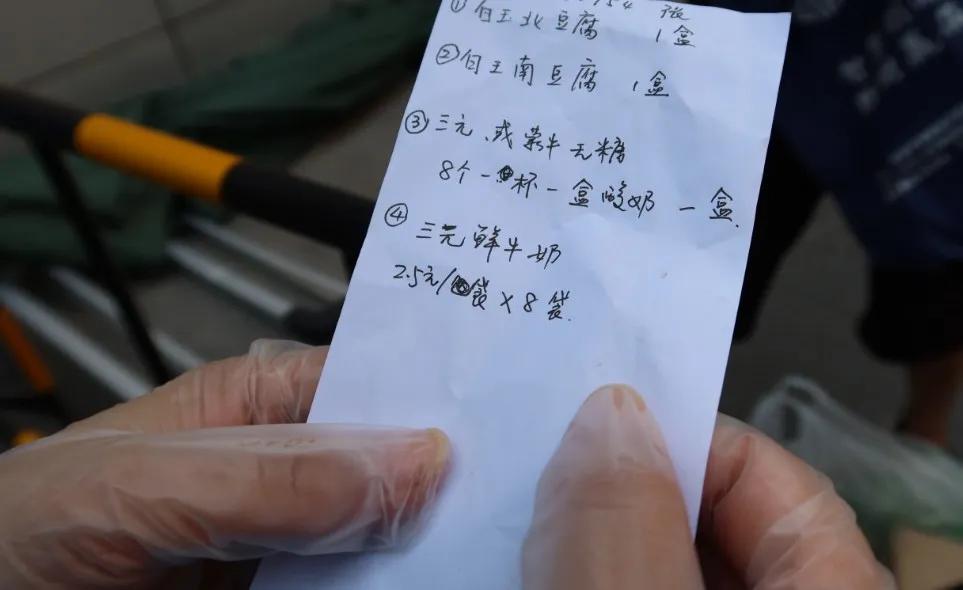 ①白玉北豆腐 1盒
②白玉南豆腐 1盒
③三元、或蒙牛无糖
8个一杯一盒酸奶 一盒.
④
三元鲜牛奶
2.5元/袋×8袋.